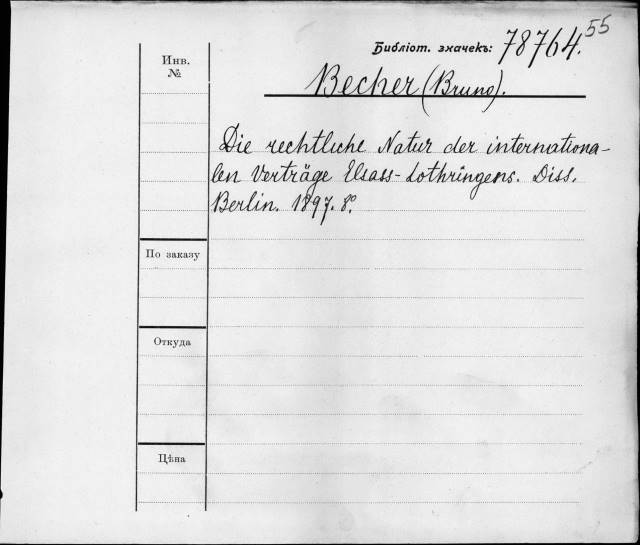 55
Библіот. значекъ: 78764.
Инв.
№
Becher (Bruno).
Die rechtliche Natur der internationa-
len Verträge Elsass-Lothringens. Diss.
Berlin. 1897. 8º.
По заказу
Откуда
Цѣна